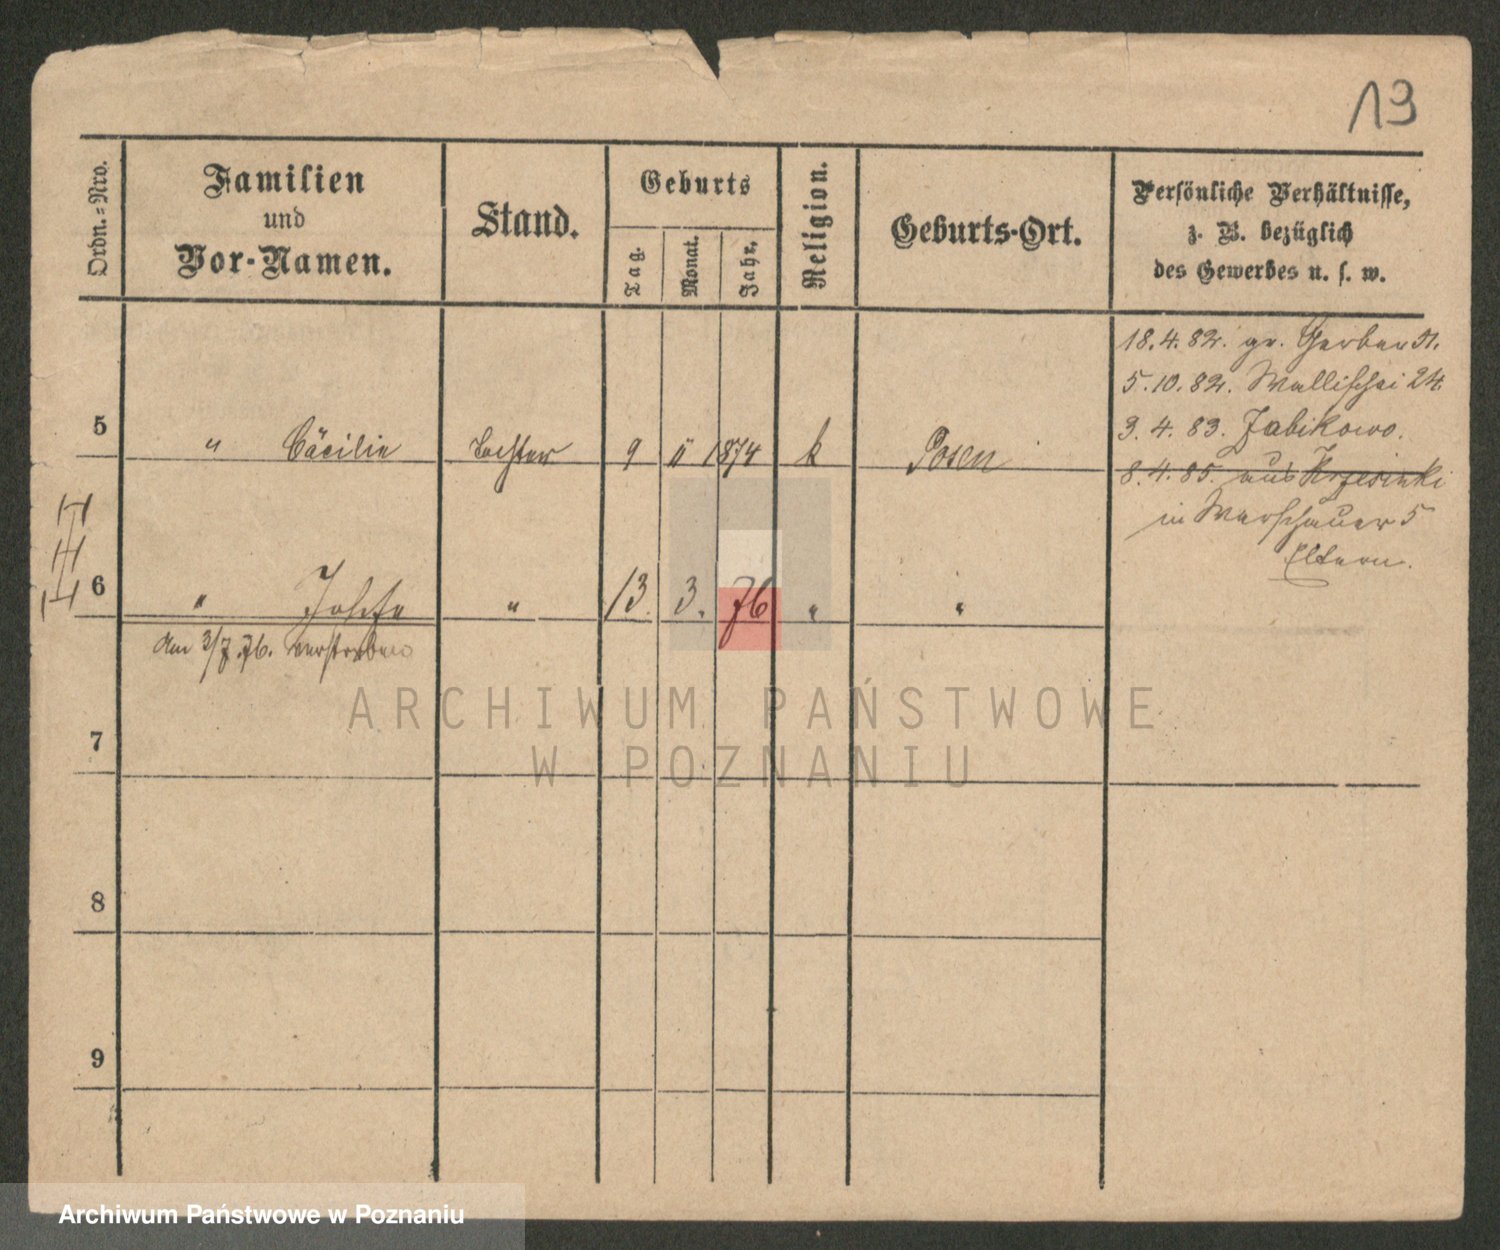 13
Ordn.=Nro.
Familien
und
Vor-Namen.
Stand.
Geburts
Tag.
Monat.
Jahr.
Religion.
Geburts-Ort.
Persönliche Verhältnisse,
z. B. bezüglich
des Gewerbes u. s. w.
18.4.82. gr. Gerber
5.10.82. Wallischei 24.
3.4.83. Zabikowo.
5 " Cäcilie Tochter 9 11 1874 k Posen
8.4.85. aus Krzesinki
in Warschauer 5
Eltern.
6 " Josefa " 13. 3. 76 " "
am 3/7.76. verstorben
7
8
9
ARCHIWUM PAŃSTWOWE
W POZNANIU
Archiwum Państwowe w Poznaniu